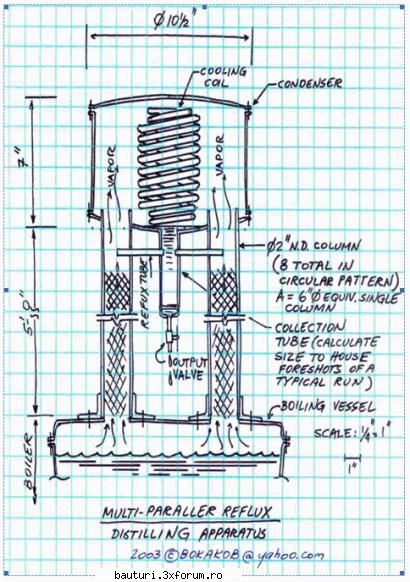 Ø 10½"
COOLING
COIL
CONDENSER
7"
VAPOR
VAPOR
Ø2" N.D. COLUMN
(8 TOTAL IN
CIRCULAR PATTERN)
A = 6"Ø EQUIV. SINGLE
COLUMN
REFLUX TUBE
5'0"
COLLECTION
TUBE (CALCULATE
SIZE TO HOUSE
FORESHOTS OF A
TYPICAL RUN)
OUTPUT
VALVE
BOILING VESSEL
SCALE: ¼" = 1"
1"
BOILER
MULTI-PARALLER REFLUX
DISTILLING APPARATUS
2003 © BOKAKOB@yahoo.com
bauturi.3xforum.ro